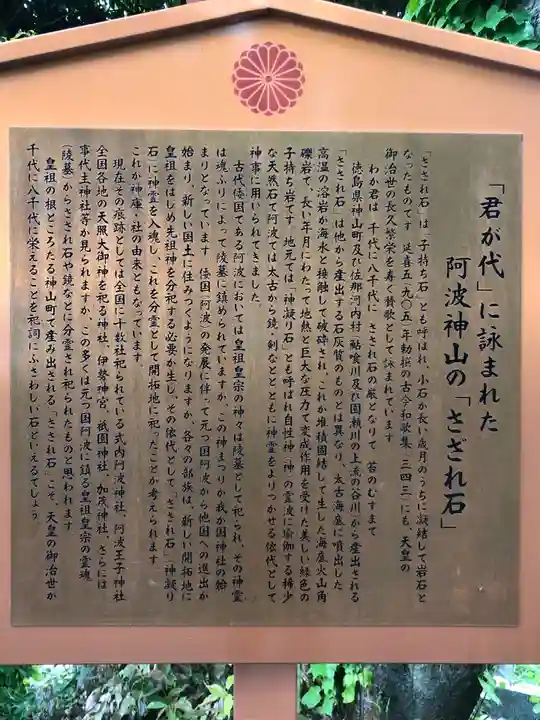 「君が代」に詠まれた
阿波神山の「さざれ石」
「さざれ石」は「子持ち石」とも呼ばれ、小石が長い歳月のうちに凝結して岩石と
なったものです 延喜五(九〇五)年勅撰の古今和歌集(三四三)にも、天皇の
御治世の長久繁栄を寿ぐ賛歌として詠まれています
わか君は 千代に八千代に さされ石の巌となりて 苔のむすまて
徳島県神山町及び佐那河内村(鮎喰川及び園瀬川の上流の谷川)から産出される
「さざれ石」は他から産出する石灰質のものとは異なり、太古海底に噴出した
高温の溶岩が海水と接触して破砕され、これが堆積固結して生じた海底火山角
礫岩で、長い年月にわたって地熱と巨大な圧力で変成作用を受けた美しい緑色の
子持ち岩です 地元では「神凝り石」とも呼ばれ自性神(神)の霊波に瑜伽する稀少
な天然石で阿波では太古から鏡、剣などとともに神霊をよりつかせる依代として
神事に用いられてきました
古代倭国である阿波においては皇祖皇宗の神々は陵墓として祀られ、その神霊
は魂ふりによって陵墓に鎮められていますが、この神まつりが我が国神社の始
まりとなっています 倭国(阿波)の発展に伴って元つ国阿波から他国への進出が
始まり、新しい国土に住みつくようになりますが、各々の部族は、新しい開拓地に
皇祖をはじめ先祖神を分祀する必要が生じ、その依代として「さざれ石」(神凝り
石)に神霊を入魂し、これを分霊として開拓地に祀ったことが考えられます
これが神庫・社の由来ともなっています
現在その痕跡としては全国に十数社祀られている式内阿波神社、阿波王子神社
全国各地の天照大御神を祀る神社、伊勢神宮、祇園神社、加茂神社、さらには
事代主神社等が見られますが、この多くは元つ国阿波に鎮る皇祖皇宗の霊魂
(陵墓)からさざれ石や鏡などに分霊され祀られたものと思われます
皇祖の根どころたる神山町で産み出される「さざれ石」こそ、天皇の御治世が
千代に八千代に栄えることを祀詞にふさわしい石といえるでしょう